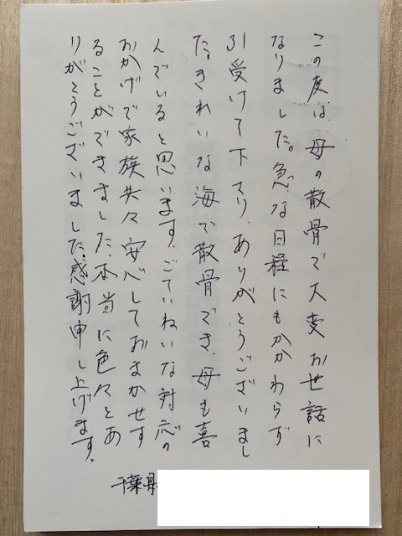 この度は母の散骨で大変お世話に
なりました。急な日程にもかかわらず
引受けて下さり、ありがとうございまし
た。きれいな海で散骨でき、母も喜
んでいると思います。ごていねいな対応の
おかげで家族共々安心しておまかせす
ることができました。本当に色々とあ
りがとうございました。感謝申し上げます。
千葉県